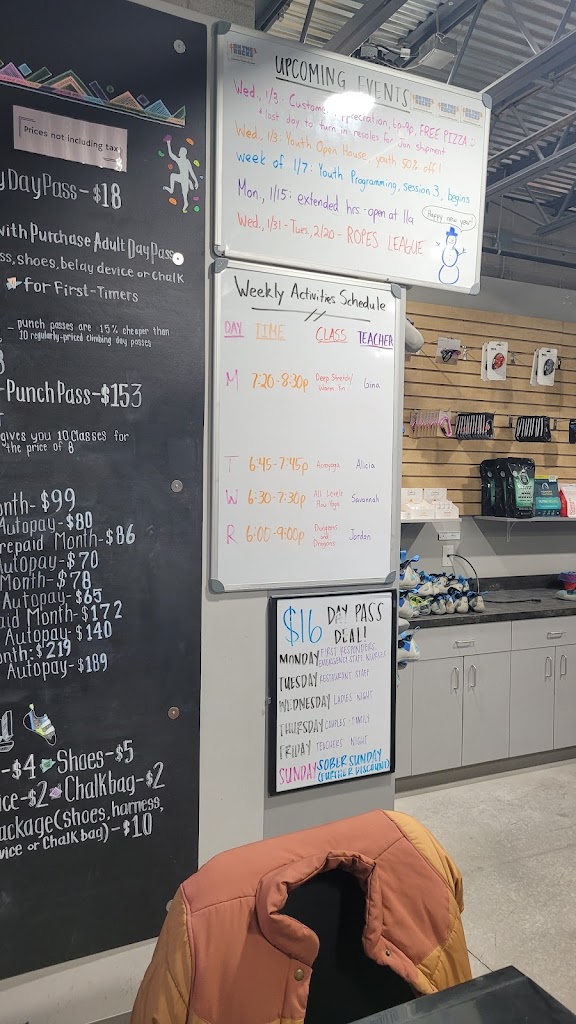 Prices not including tax
yDayPass-$18
with Purchase Adult DayPass
ss, shoes, belay device or chalk
for First-Timers
- punch passes are 15% cheaper than
10 regularly-priced climbing day passes
-PunchPass-$153
gives you 10 classes for
the price of 8
onth-$99
Autopay-$80
repaid Month-$86
Autopay-$70
Month-$78
Autopay-$65
aid Month-$172
Autopay-$140
onth:$219
Autopay-$189
-$4 Shoes-$5
ice-$2 Chalkbag-$2
ackage(shoes, harness,
vice or Chalk bag)-$10
UPCOMING EVENTS
Wed., 1/3: Customer Appreciation, 6p-9p, FREE PIZZA :
+ last day to turn in resoles for Jan shipment
Wed., 1/3: Youth Open House, youth 50% off!
week of 1/7: Youth Programming, session 3, begins
Mon., 1/15: extended hrs - open at 11a
Wed., 1/31 - Tues., 2/20 - ROPES LEAGUE
Happy new year!
Weekly Activities Schedule
DAY TIME CLASS TEACHER
M 7:20-8:30p Deep Stretch/ Gina
Warm Yin
T 6:45-7:45p Acroyoga Alicia
W 6:30-7:30p All Levels Savannah
Flow Yoga
R 6:00-9:00p Dungeons Jordan
and
Dragons
$16 DAY PASS
DEAL!
MONDAY FIRST RESPONDERS,
EMERGENCY STAFF, NURSES
TUESDAY RESTAURANT STAFF
WEDNESDAY LADIES NIGHT
THURSDAY COUPLES + FAMILY
FRIDAY TEACHERS NIGHT
SUNDAY SOBER SUNDAY
(FURTHER DISCOUNT)